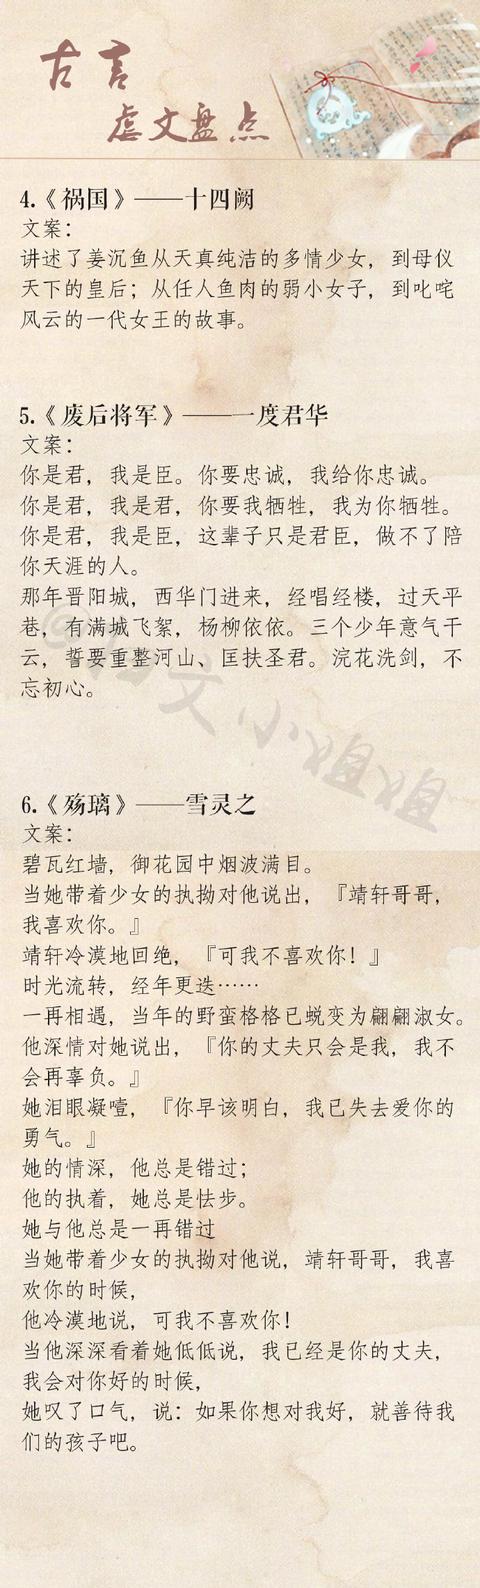 古言
虐文盘点
4.《祸国》——十四阙
文案：
讲述了姜沉鱼从天真纯洁的多情少女，到母仪
天下的皇后；从任人鱼肉的弱小女子，到叱咤
风云的一代女王的故事。
5.《废后将军》——一度君华
文案：
你是君，我是臣。你要忠诚，我给你忠诚。
你是君，我是君，你要我牺牲，我为你牺牲。
你是君，我是臣，这辈子只是君臣，做不了陪
你天涯的人。
那年晋阳城，西华门进来，经唱经楼，过天平
巷，有满城飞絮，杨柳依依。三个少年意气干
云，誓要重整河山、匡扶圣君。浣花洗剑，不
忘初心。
文小姐姐
6.《殇璃》——雪灵之
文案：
碧瓦红墙，御花园中烟波满目。
当她带着少女的执拗对他说出，『靖轩哥哥，
我喜欢你。』
靖轩冷漠地回绝，『可我不喜欢你！』
时光流转，经年更迭……
一再相遇，当年的野蛮格格已蜕变为翩翩淑女。
他深情对她说出，『你的丈夫只会是我，我不
会再辜负。』
她泪眼凝噎，『你早该明白，我已失去爱你的
勇气。』
她的情深，他总是错过；
他的执着，她总是怯步。
她与他总是一再错过
当她带着少女的执拗对他说，靖轩哥哥，我喜
欢你的时候，
他冷漠地说，可我不喜欢你！
当他深深看着她低低说，我已经是你的丈夫，
我会对你好的时候，
她叹了口气，说：如果你想对我好，就善待我
们的孩子吧。